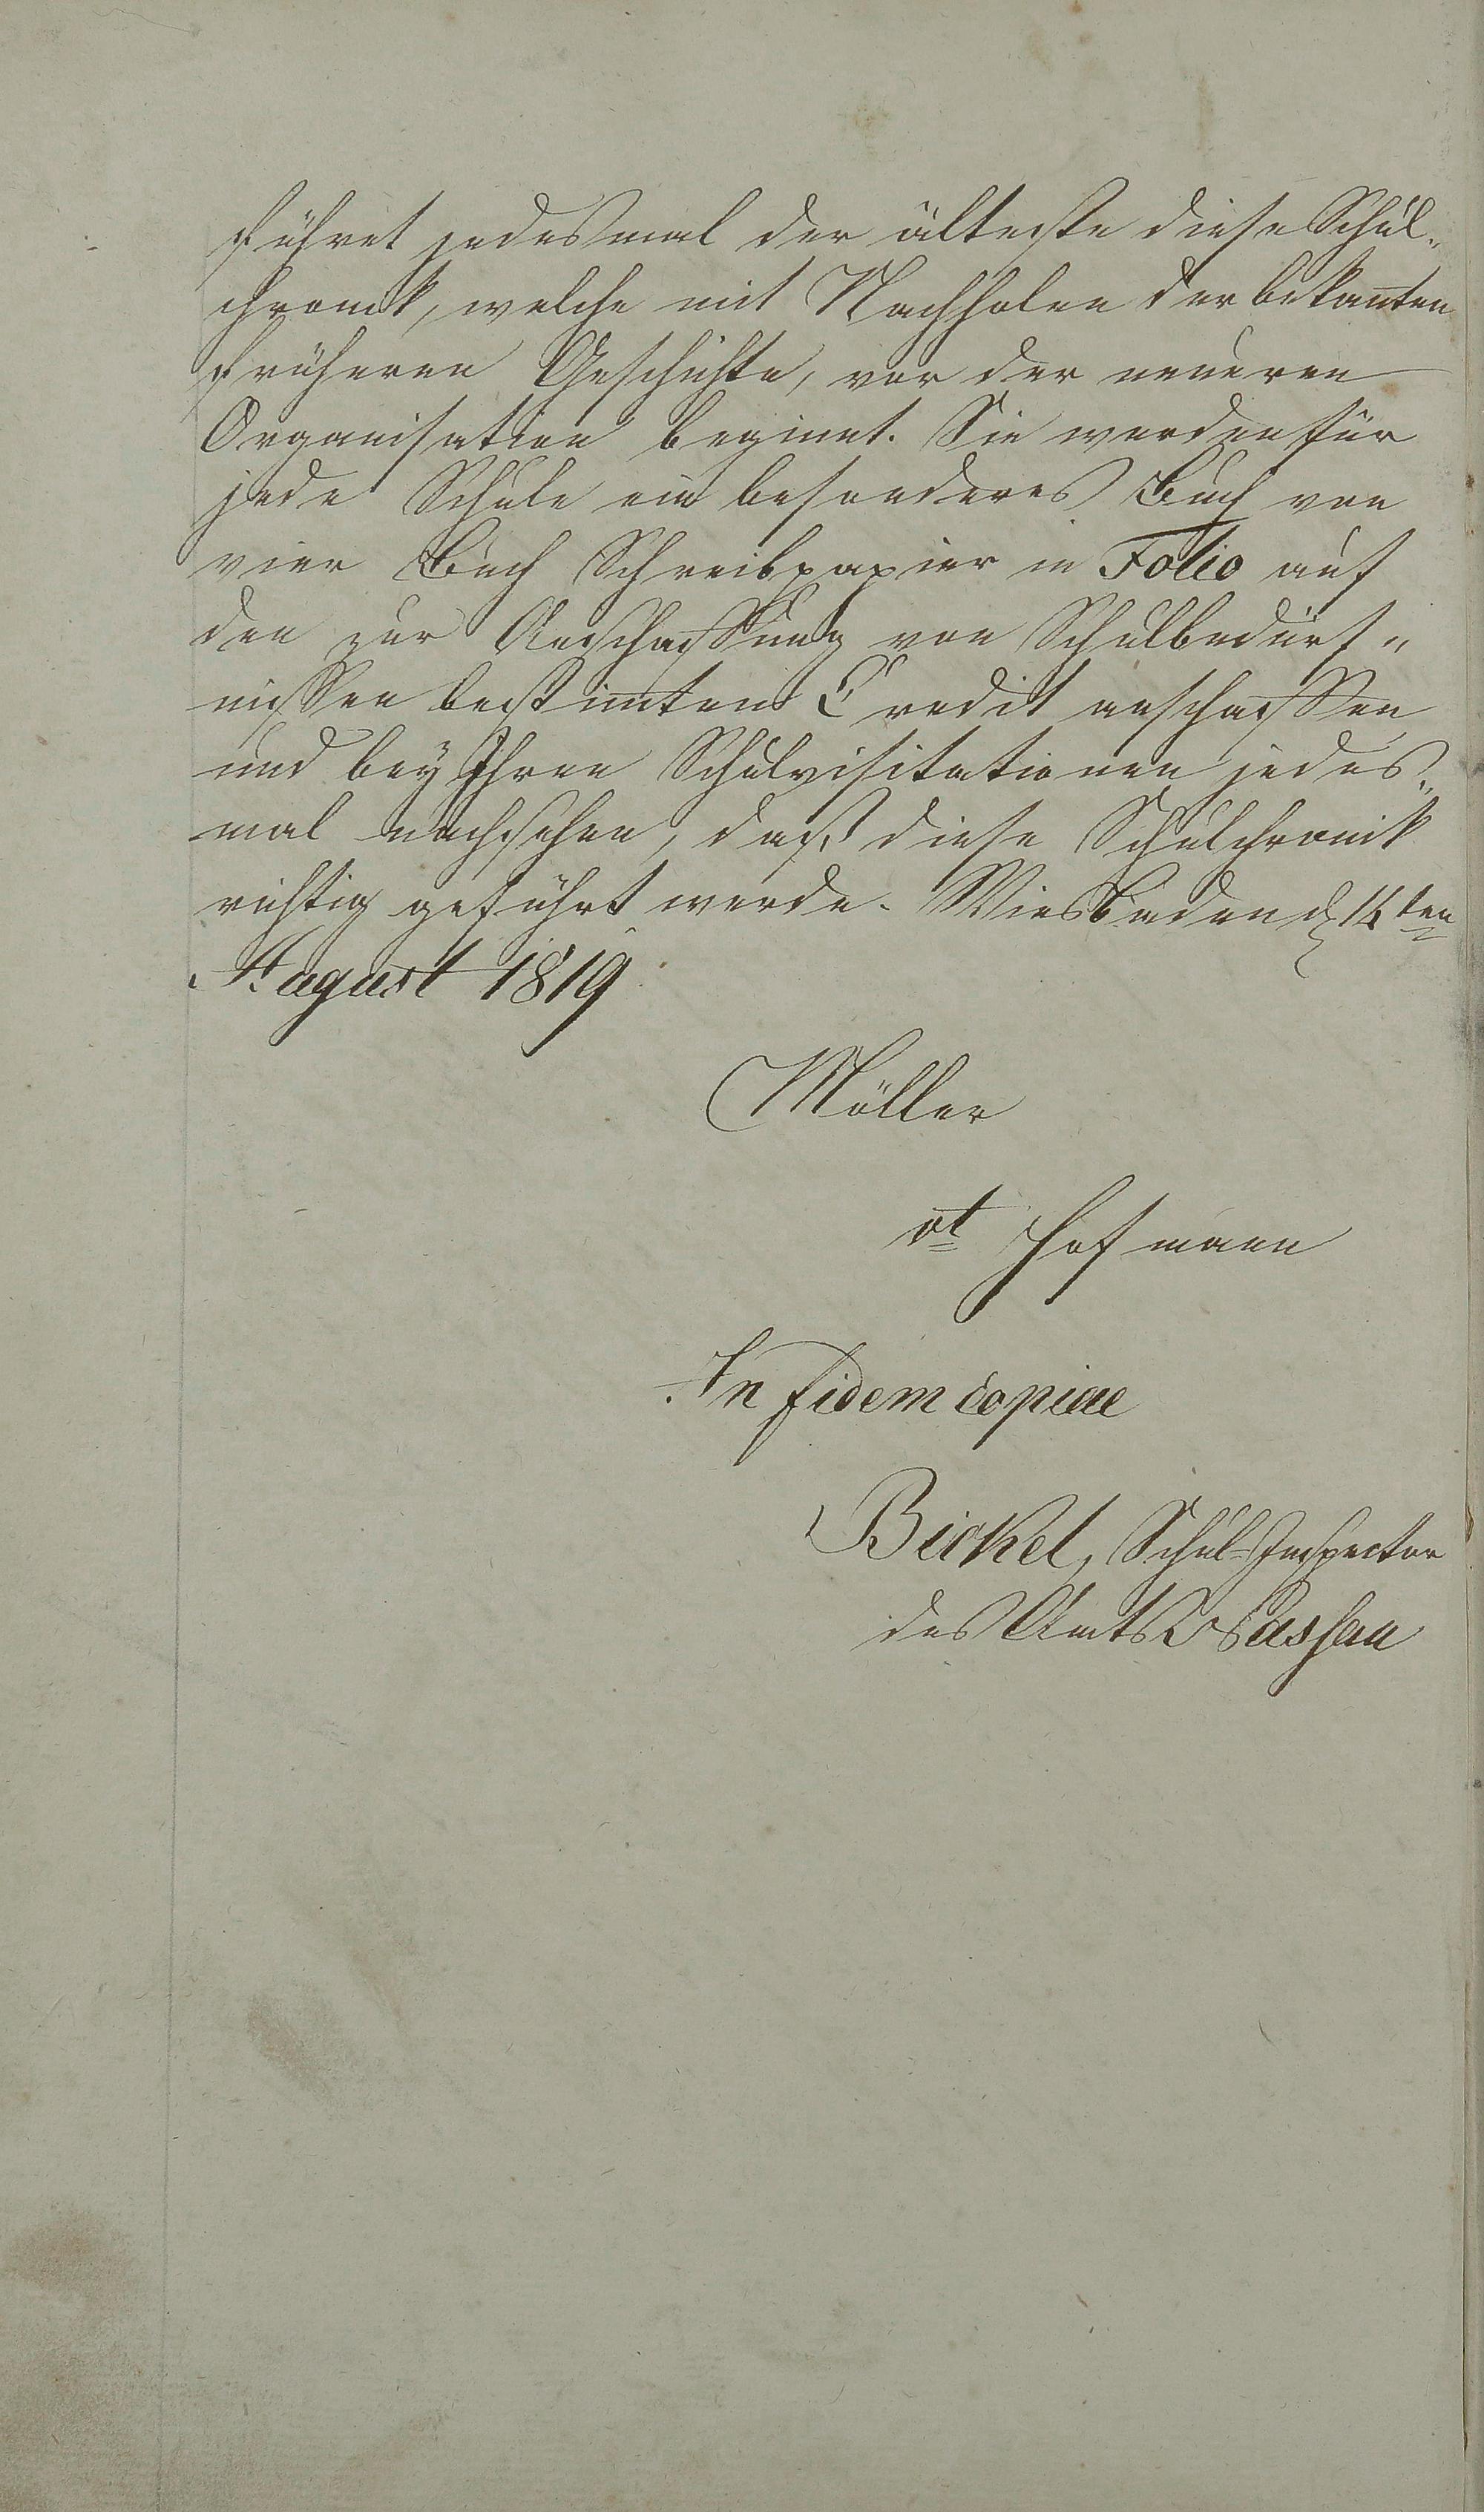 führet jedesmal der älteste diese Schul„
chronik, welche mit Nachholen der bekan̅ten
früheren Geschichte, vor der neueren
Organisation beginnt. Sie werden für
jede Schule ein besonderes Buch von
vier Buch Schreibpapier in Folio auf
den zur Anschaffung von Schulbedürf„
nissen bestim̅ten Credit anschaffen
und bey Ihren Schulvisitationen jedes„
mal nachsehen, daß diese Schulchronik
richtig geführt werde. Wiesbaden d 14ten
August 1819
Möller
vt Hofmann
In fidem copiae
Bickel, Schul-Inspector
des Amts Nassau